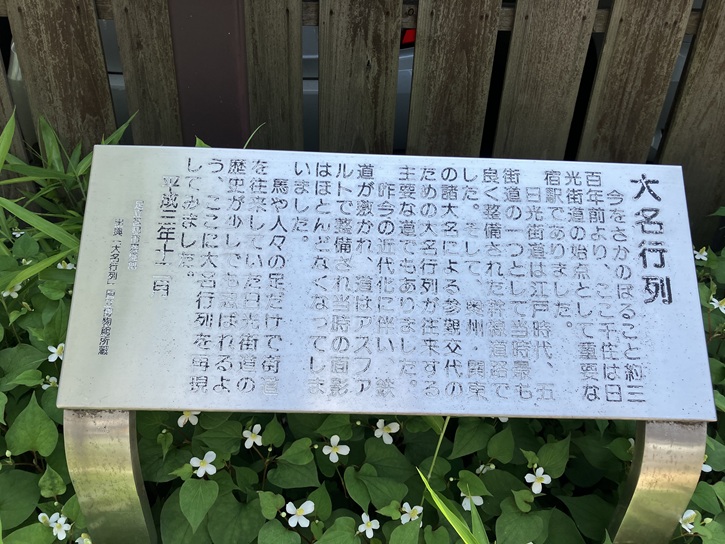 大名行列
今をさかのぼること約三
百年前より、ここ千住は日
光街道の始点として重要な
宿駅でありました。
日光街道は江戸時代、五
街道の一つとして当時最も
良く整備された幹線道路で
した。そして、奥州、関東
の諸大名による参勤交代の
ための大名行列が往来する
主要な道でもありました。
昨今の近代化に伴い、鉄
道が敷かれ、道はアスファ
ルトで整備され当時の面影
はほとんどなくなってしま
いました。
馬や人々の足だけで街道
を往来していた日光街道の
歴史が少しでも偲ばれるよ
う、ここに大名行列を再現
してみました。
平成三年十二月
「大名行列」
所蔵